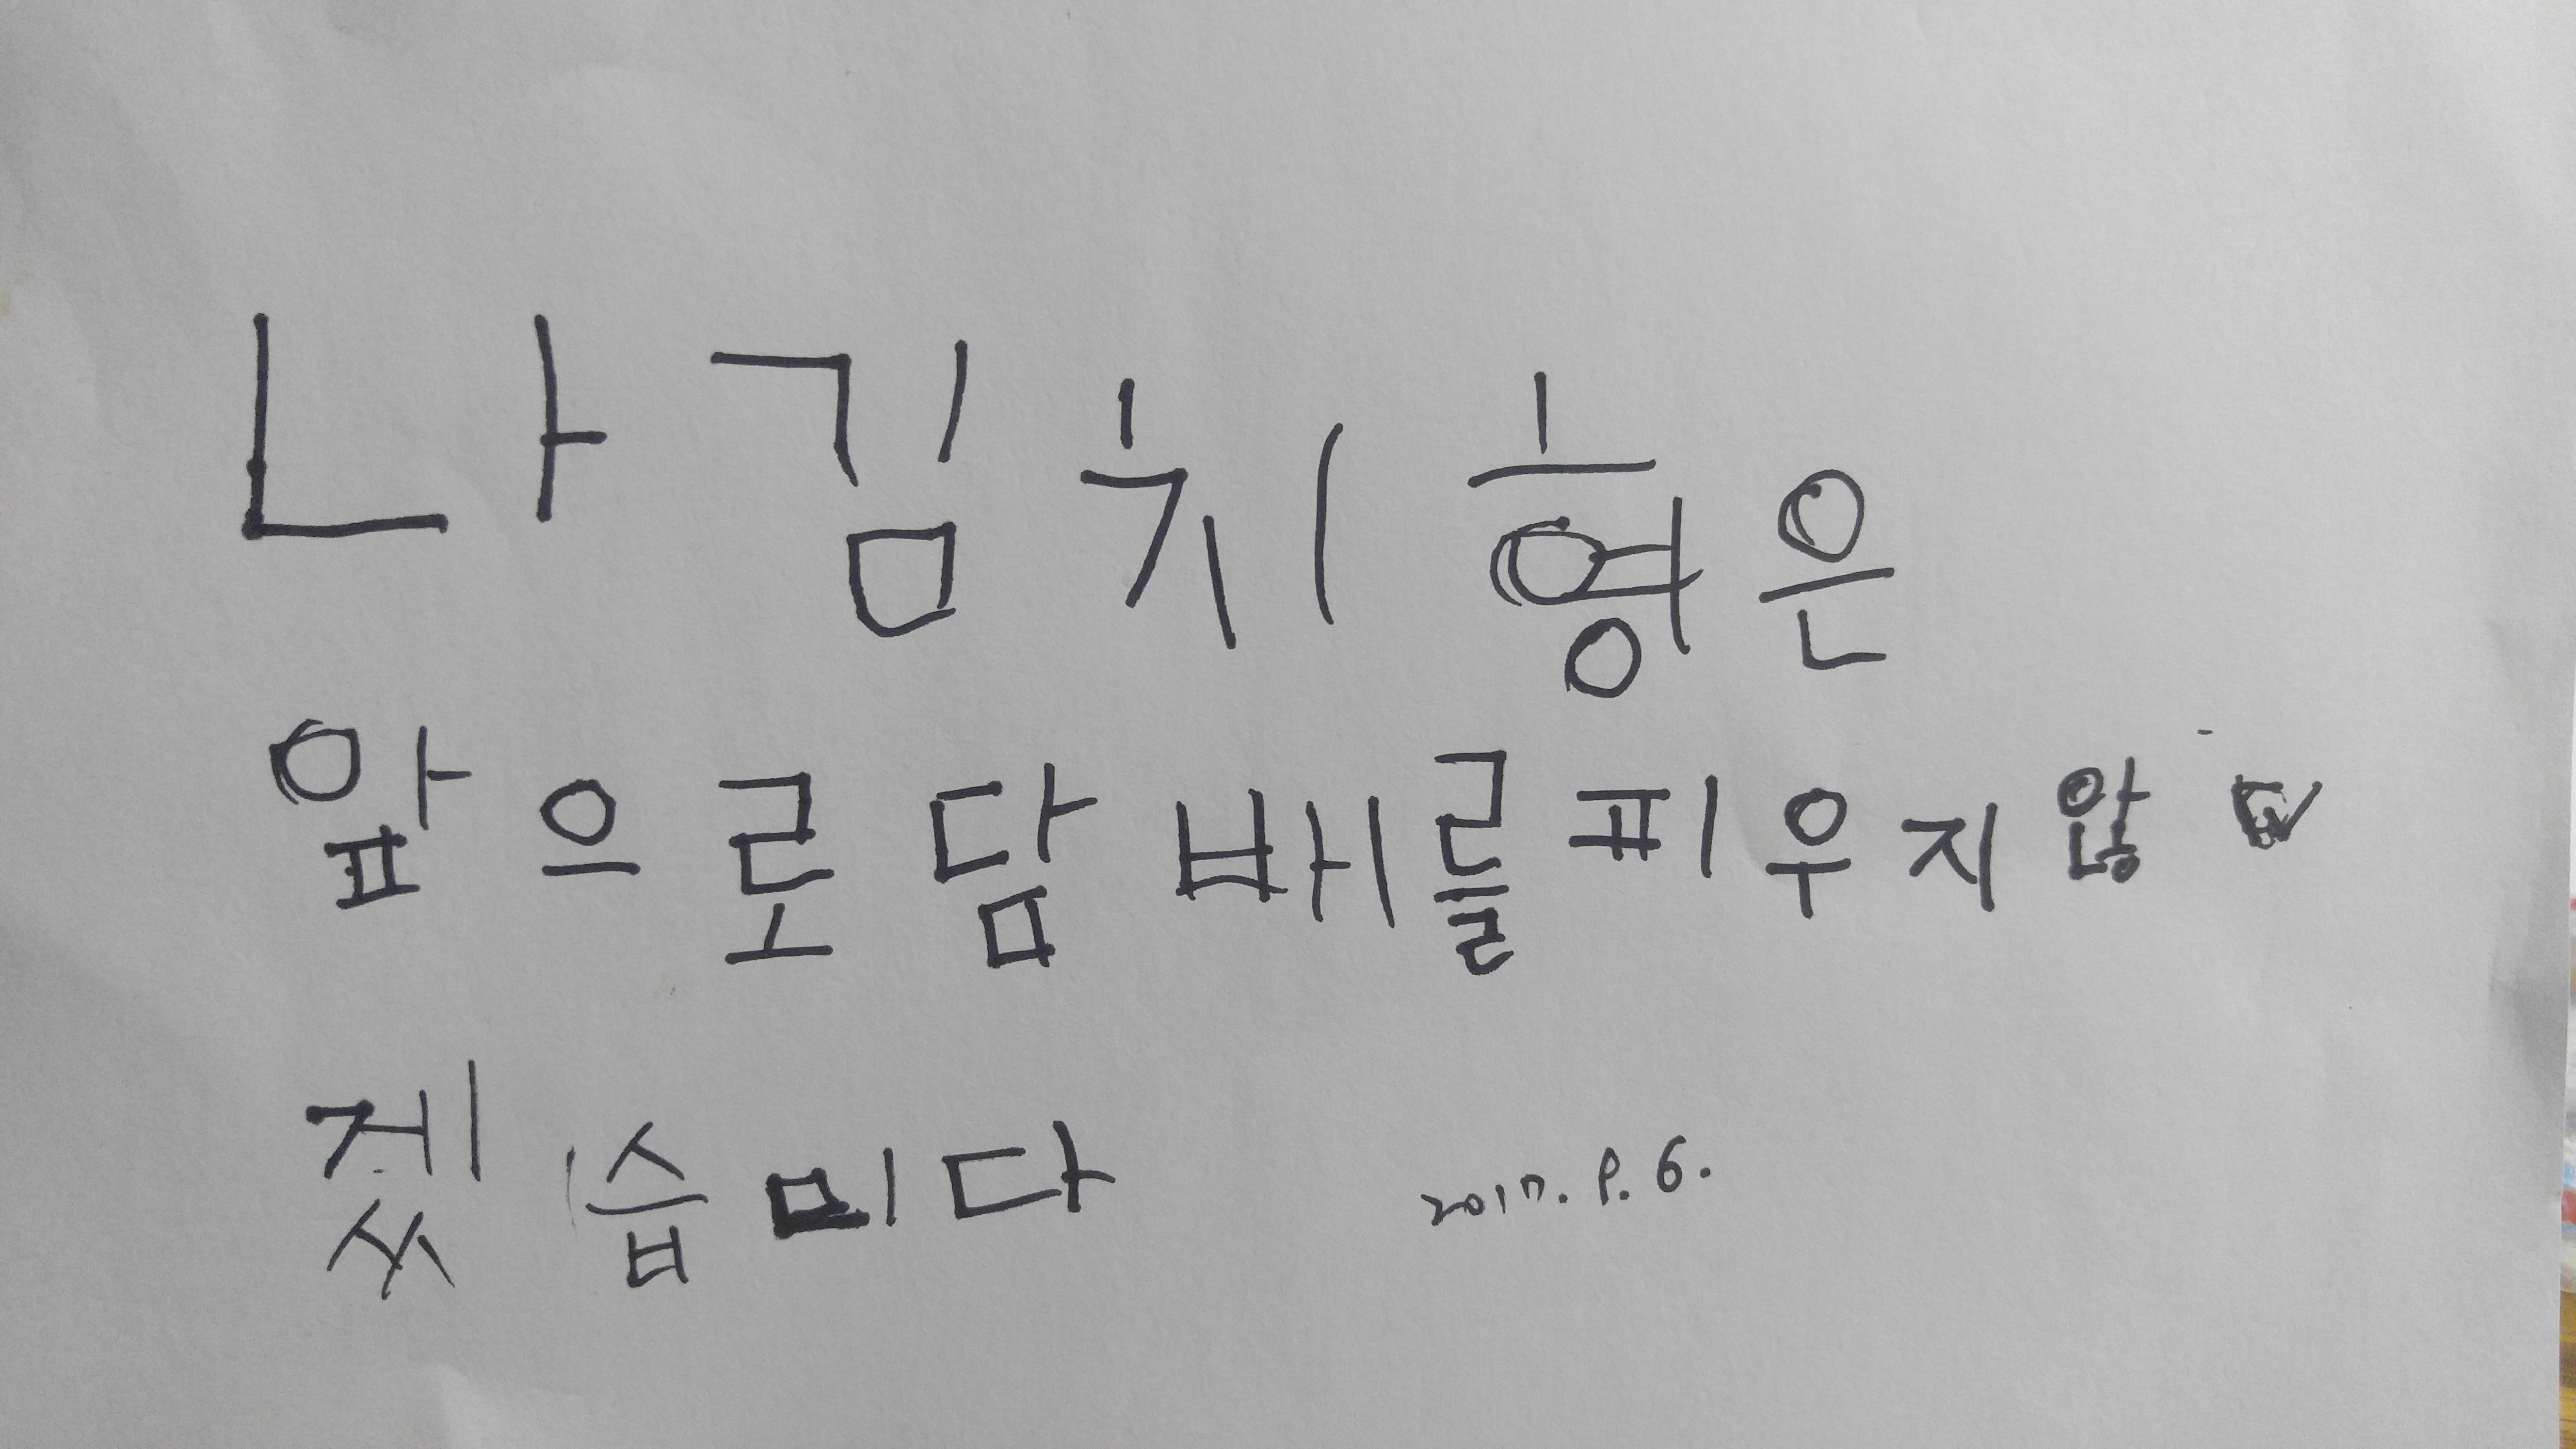 나 김치형은
앞으로담배를피우지않
젰습미다 2017. 8. 6.